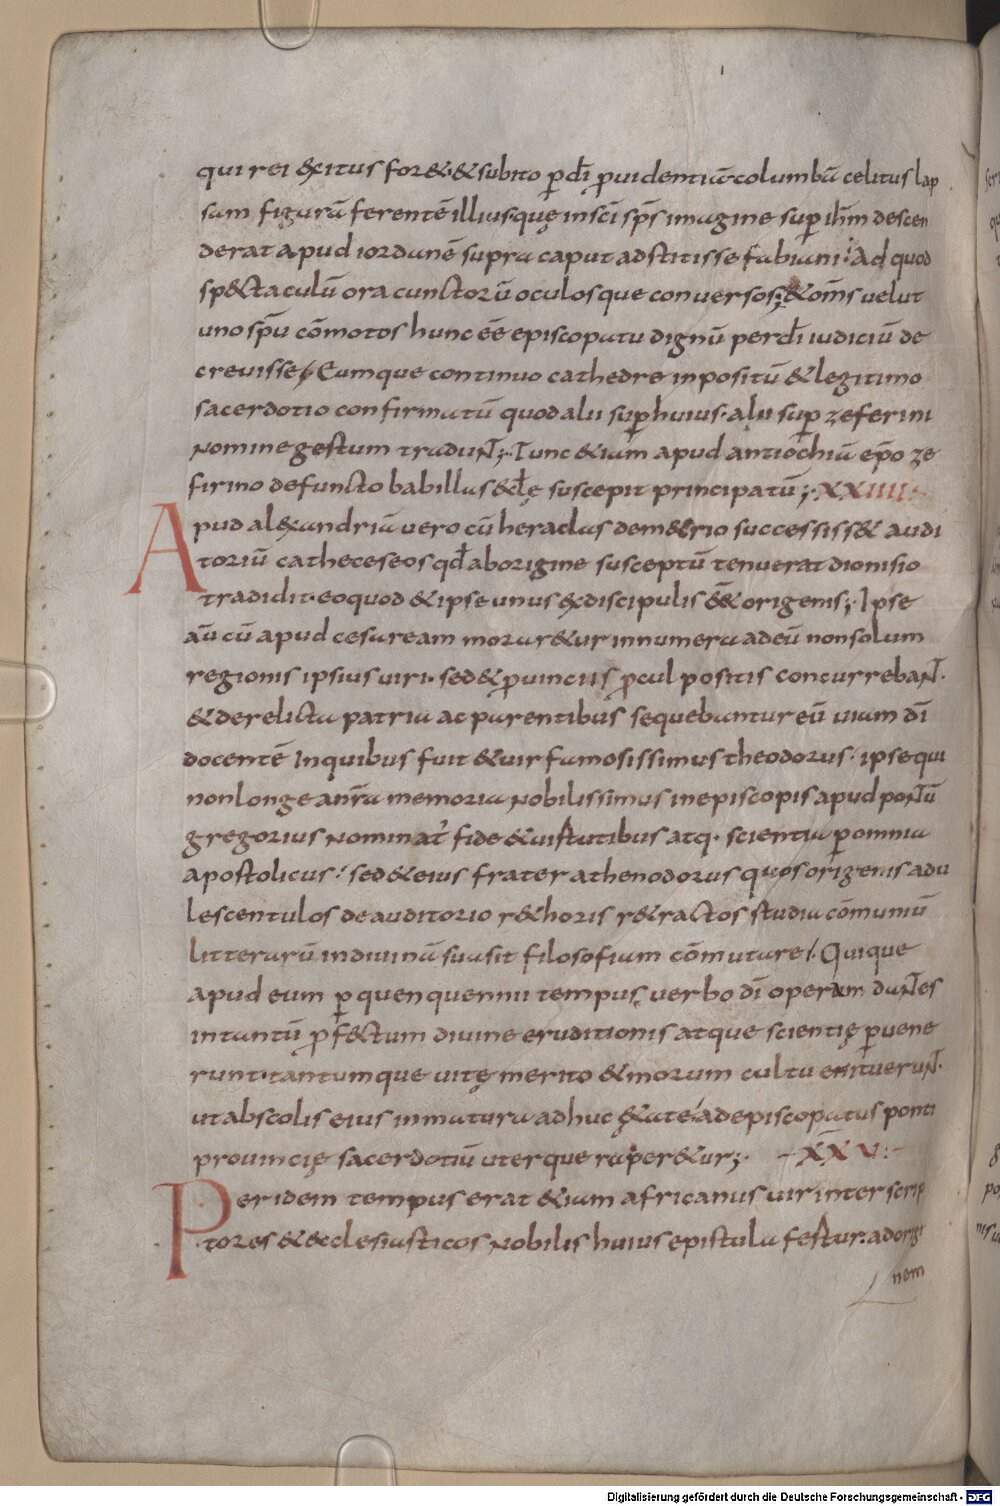 qui rei exitus for&. & subito p̱ dī p̱uidentiā columbā celitus lap
sam figurā ferentē illius. quę in scī sp̄s imagine sup̱ ih̄m descen
derat apud iordanē supra caput adstitisse fabiani: Ad quod
sp&taculū ora cunctorū oculosque conversos; & om̄s velut
uno sp̄u cōmotos hunc ēē episcopatu dignū per dī iudiciū de
crevisse; Eumque continuo cathedre inpositū & legitimo
sacerdotio confirmatū quod alii sup̱ huius. alii sup̱ zeferini
nomine gestum tradunt̄; Tunc &iam apud antiochiā ep̄o ze
firino defuncto babillas &cl̄ę suscepit principatū; XXIIII:
Apud alexandriā vero cū heraclas dem&rio successiss& audi
toriū catheceseos qd̄ ab origine susceptū tenuerat dionisio
tradidit. eo quod & ipse unus ex discipulis ēē& origenis; Ipse
aū cū apud cesaream morar&ur innumera ad eū non solum
regionis ipsius viri. sed & p̱uinciis p̱cul positis concurrebant̄.
& derelicta patria ac parentibus sequebantur eū viam dī
docentē In quibus fuit & vir famosissimus theodorus. ipse qui
non longe a nr̄a memoria nobilissimus in episcopis apud pontū
gregorius nominat̄ fide & virtutibus atq. scientia p̱ omnia
apostolicus: sed & eius frater athenodorus quos origenis adu
lescentulos de auditorio r&horis r&ractos studia cōmuniū
litterarū in divinā suasit filosofiam cōmutare; Quique
apud eum p̱ quenquennii tempus verbo dī operam dantes
in tantū p̱f&ctum divine eruditionis atque scientię p̱uene
runt. tantumque vitę merito & morum cultu enituerunt̄.
ut ab scolis eius inmatura adhuc ę&ate ad episcopatus ponti
provincię sacerdotiū uterque raper&ur; XXV:
Per idem tempus erat &iam africanus vir inter scrip
tores & ecclesiasticos nobilis huius epistula fertur. ad orige
nem
Digitalisierung gefördert durch die Deutsche Forschungsgemeinschaft - DFG